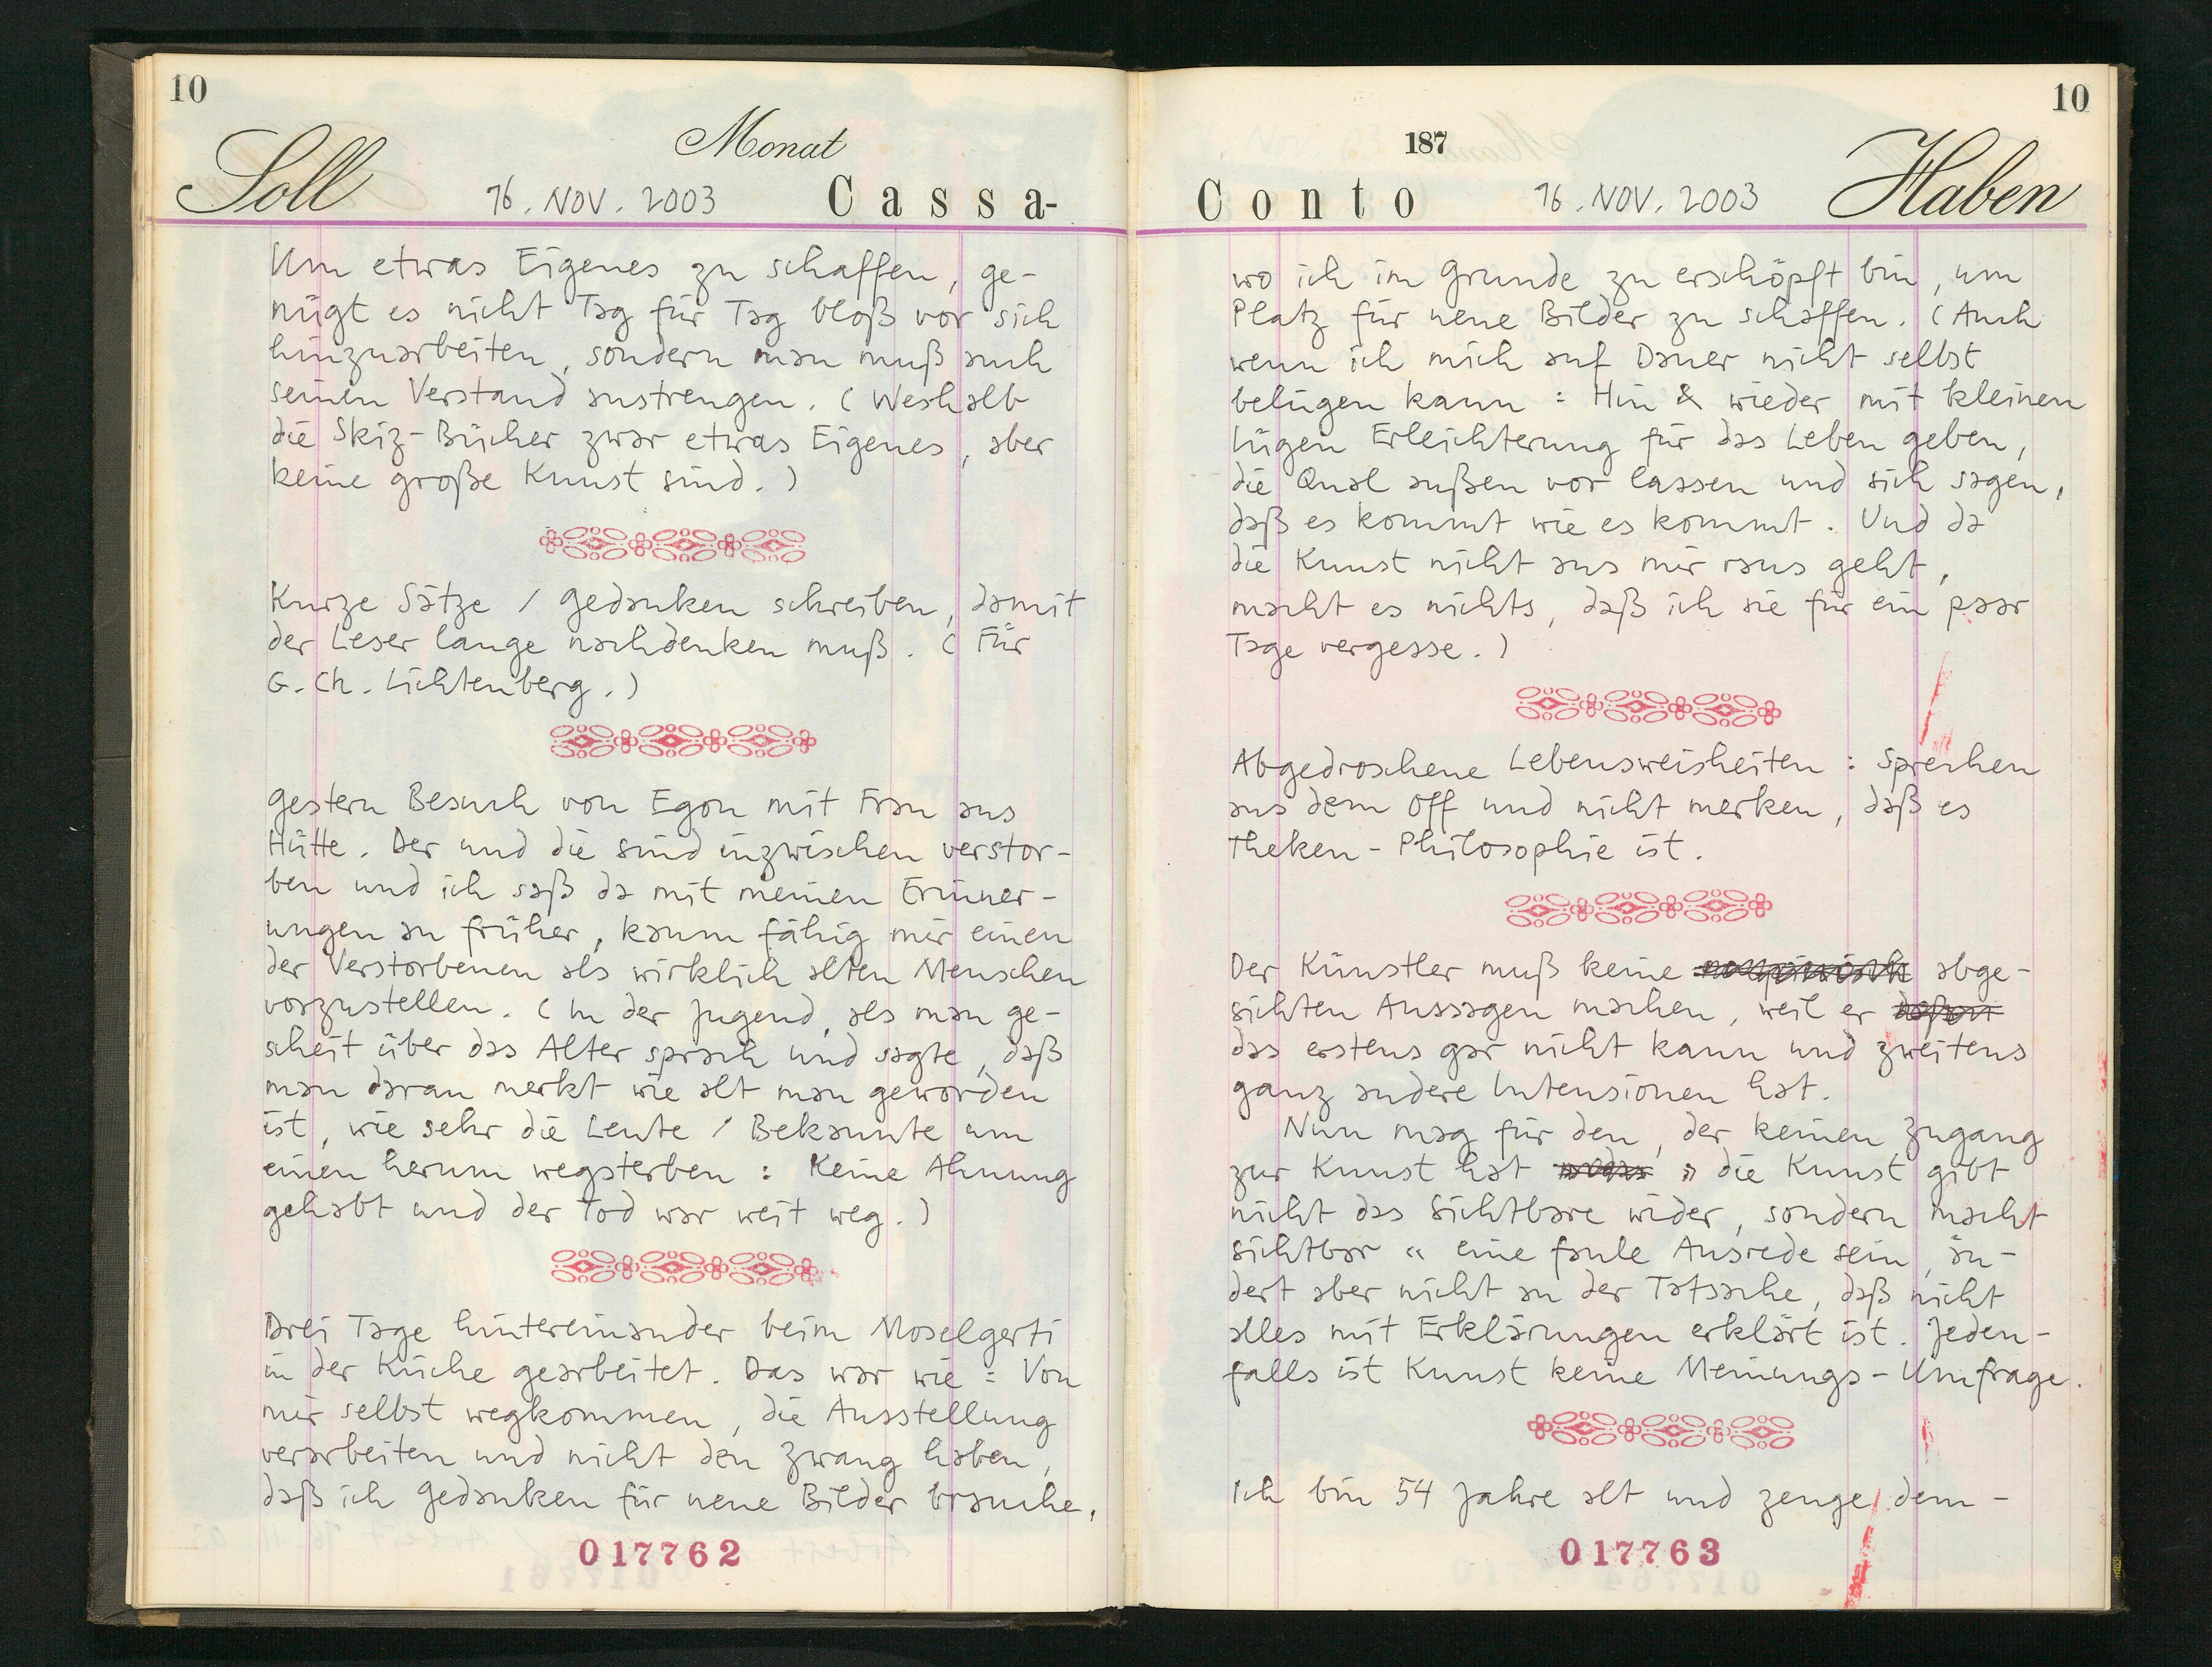 10
Soll
Monat
16. NOV. 2003
Cassa-
Um etwas Eigenes zu schaffen, ge-
nügt es nicht Tag für Tag bloß vor sich
hinzuarbeiten, sondern man muß auch
seinen Verstand anstrengen. (Weshalb
die Skiz-Bücher zwar etwas Eigenes, aber
keine große Kunst sind.)
Kurze Sätze / Gedanken schreiben, damit
der Leser lange nachdenken muß. (Für
G. Ch. Lichtenberg.)
Gestern Besuch von Egon mit Frau aus
Hütte. Der und die sind inzwischen verstor-
ben und ich saß da mit meinen Erinner-
ungen an früher, kaum fähig mir einen
der Verstorbenen als wirklich alten Menschen
vorzustellen. (In der Jugend, als man ge-
scheit über das Alter sprach und sagte, daß
man daran merkt wie alt man geworden
ist, wie sehr die Leute / Bekannte um
einen herum wegsterben: Keine Ahnung
gehabt und der Tod war weit weg.)
Drei Tage hintereinander beim Moselgerti
in der Küche gearbeitet. Das war wie: Von
mir selbst wegkommen, die Ausstellung
verarbeiten und nicht den Zwang haben,
daß ich Gedanken für neue Bilder brauche,
017762
10
187
Conto
16. NOV. 2003
Haben
wo ich im Grunde zu erschöpft bin, um
Platz für neue Bilder zu schaffen. (Auch
wenn ich mich auf Dauer nicht selbst
belügen kann: Hin & wieder mit kleinen
Lügen Erleichterung für das Leben geben,
die Qual außen vor lassen und sich sagen,
daß es kommt wie es kommt. Und da
die Kunst nicht aus mir raus geht,
macht es nichts, daß ich sie für ein paar
Tage vergesse.)
Abgedroschene Lebensweisheiten: Sprechen
aus dem Off und nicht merken, daß es
Theken-Philosophie ist.
Der Künstler muß keine abge-
sichten Aussagen machen, weil er
das erstens gar nicht kann und zweitens
ganz andere Intensionen hat.
Nun mag für den, der keinen Zugang
zur Kunst hat „die Kunst gibt
nicht das Sichtbare wider, sondern macht
sichtbar“ eine faule Ausrede sein, än-
dert aber nicht an der Tatsache, daß nicht
alles mit Erklärungen erklärt ist. Jeden-
falls ist Kunst keine Meinungs-Umfrage.
Ich bin 54 Jahre alt und zeuge dem-
017763